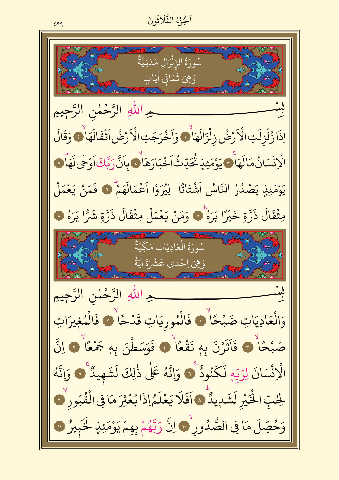 اَلْجُزْءُ الثَّلَاثُونَ
سُورَةُ الزِّلْزَالِ مَدَنِيَّةٌ
وَهِيَ ثَمَانِي اٰيَاتٍ
بِسْمِ اللّٰهِ الرَّحْمٰنِ الرَّحِيمِ
اِذَا زُلْزِلَتِ الْاَرْضُ زِلْزَالَهَاۙ ١ وَاَخْرَجَتِ الْاَرْضُ اَثْقَالَهَاۙ ٢ وَقَالَ
الْاِنْسَانُ مَا لَهَاۚ ٣ يَوْمَئِذٍ تُحَدِّثُ اَخْبَارَهَاۙ ٤ بِاَنَّ رَبَّكَ اَوْحٰى لَهَاۜ ٥
يَوْمَئِذٍ يَصْدُرُ النَّاسُ اَشْتَاتًا لِيُرَوْا اَعْمَالَهُمْۜ ٦ فَمَنْ يَعْمَلْ
مِثْقَالَ ذَرَّةٍ خَيْرًا يَرَهُۜ ٧ وَمَنْ يَعْمَلْ مِثْقَالَ ذَرَّةٍ شَرًّا يَرَهُ ٨
سُورَةُ الْعَادِيَاتِ مَكِّيَّةٌ
وَهِيَ اِحْدٰى عَشْرَةَ اٰيَةً
بِسْمِ اللّٰهِ الرَّحْمٰنِ الرَّحِيمِ
وَالْعَادِيَاتِ ضَبْحًاۙ ١ فَالْمُورِيَاتِ قَدْحًاۙ ٢ فَالْمُغِيرَاتِ
صُبْحًاۙ ٣ فَاَثَرْنَ بِهِ نَقْعًاۙ ٤ فَوَسَطْنَ بِهِ جَمْعًاۙ ٥ اِنَّ
الْاِنْسَانَ لِرَبِّهِ لَكَنُودٌۚ ٦ وَاِنَّهُ عَلٰى ذٰلِكَ لَشَهِيدٌۚ ٧ وَاِنَّهُ
لِحُبِّ الْخَيْرِ لَشَدِيدٌۜ ٨ اَفَلَا يَعْلَمُ اِذَا بُعْثِرَ مَا فِي الْقُبُورِۙ ٩
وَحُصِّلَ مَا فِي الصُّدُورِۙ ١٠ اِنَّ رَبَّهُمْ بِهِمْ يَوْمَئِذٍ لَخَبِيرٌ ١١